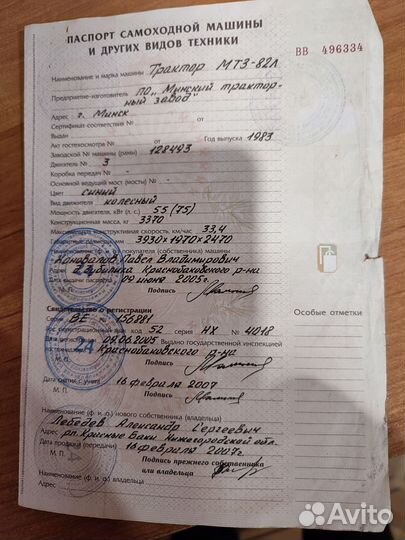 ПАСПОРТ САМОХОДНОЙ МАШИНЫ
И ДРУГИХ ВИДОВ ТЕХНИКИ
ВВ 496334
Наименование и марка машины Трактор МТЗ-82Л
Предприятие-изготовитель ПО "Минский трактор-
ный завод"
Адрес г. Минск
Сертификат соответствия № - от
Выдан
Акт гостехосмотра № от Год выпуска 1983
Заводской № машины (рамы) 128493
Двигатель № 3
Коробка передач № -
Основной ведущий мост (мосты) № -
Цвет синий
Вид движителя колесный
Мощность двигателя, кВт (л. с.) 55 (75)
Конструкционная масса, кг 3370
Максимальная конструктивная скорость, км/час 33,4
Габаритные размеры, мм 3930×1970×2470
покупателя (собственника) машины
Коновалов Павел Владимирович
Адрес Краснобаковского р-на
Дата выдачи паспорта 09 июня 2005г.
М. П. Подпись
Особые отметки
Свидетельство о регистрации
серия ВЕ № 156881
Гос. регистрационный знак код 52 серия НХ № 4018
Дата регистрации 09.06.2005 Выдано государственной инспекцией
гостехнадзора Краснобаковского р-на
М. П. Подпись
Дата снятия с учета 16 февраля 2007
М. П. Подпись
Наименование (ф. и. о.) нового собственника (владельца)
Лебедев Александр Сергеевич
Адрес рп. Красные Баки Нижегородской обл.
Дата продажи (передачи) 16 февраля 2007г.
М. П. Подпись прежнего собственника
или владельца
Наименование (ф. и. о.) собственника (владельца)
Адрес
Avito